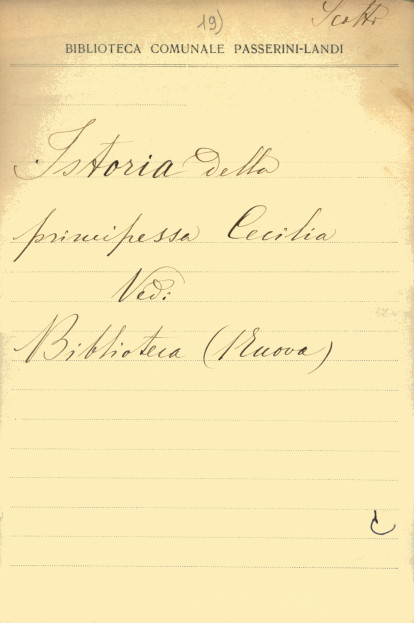 19)
Scotti
BIBLIOTECA COMUNALE PASSERINI-LANDI
Istoria della
principessa Cecilia
Ved:
Biblioteca (Nuova)
C